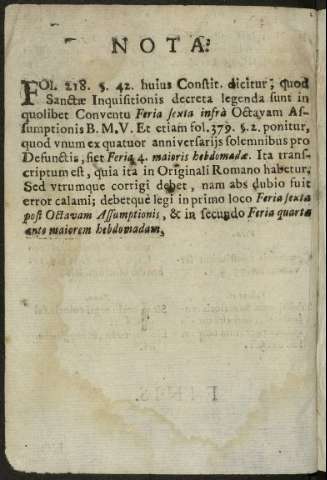 NOTA.
FOl. 218. §. 42. huius Constit. dicitur; quod
Sanctæ Inquisitionis decreta legenda sunt in
quolibet Conventu Feria sexta infrà Octavam As-
sumptionis B. M. V. Et etiam fol. 379. §. 2. ponitur,
quod vnum ex quatuor anniversarijs solemnibus pro
Defunctis, fiet Feria 4. maioris hebdomadæ. Ita trans-
criptum est, quia ita in Originali Romano habetur.
Sed vtrumque corrigi debet, nam abs dubio fuit
error calami; debetquè legi in primo loco Feria sexta
post Octavam Assumptionis, & in secundo Feria quarta
ante maiorem hebdomadam,